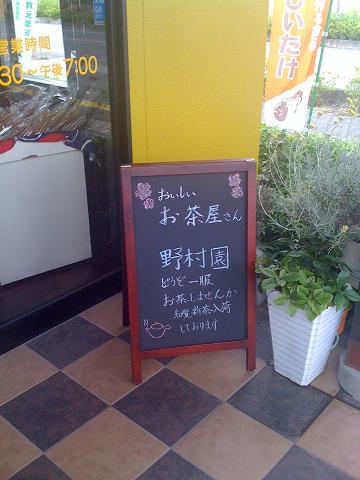 教えます
営業時間
30～午後7:00
しいたけ
おいしい
お茶屋さん
野村園
どうぞ一服
お茶しませんか
知覧新茶入荷
しております